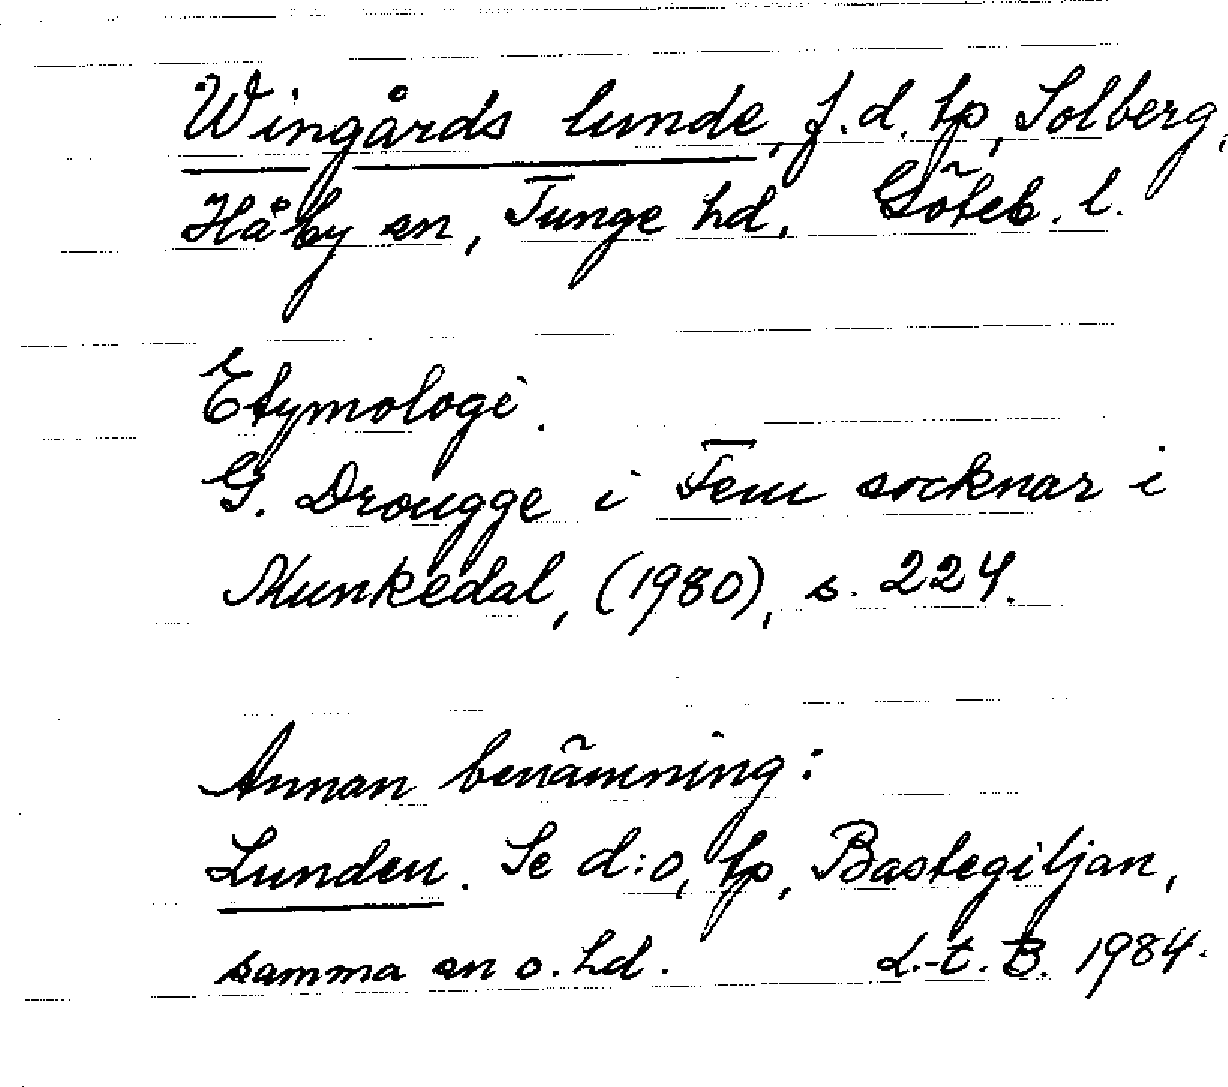 Wingårds lunde, f.d. tp, Solberg,
Håby sn, Tunge hd. Göteb. l.
Etymologi.
G. Drougge i Fem socknar i
Munkedal, (1980), s. 224.
Annan benämning:
Lunden. Se d:o, tp, Bastegiljan,
samma sn o. hd. L.-t. B. 1984.